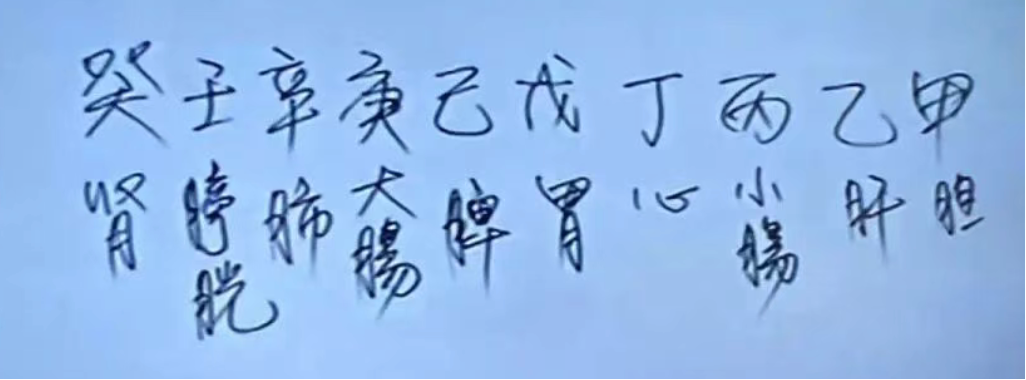 癸壬辛庚己戊丁丙乙甲
肾膀胱肺大腸脾胃心小腸肝胆